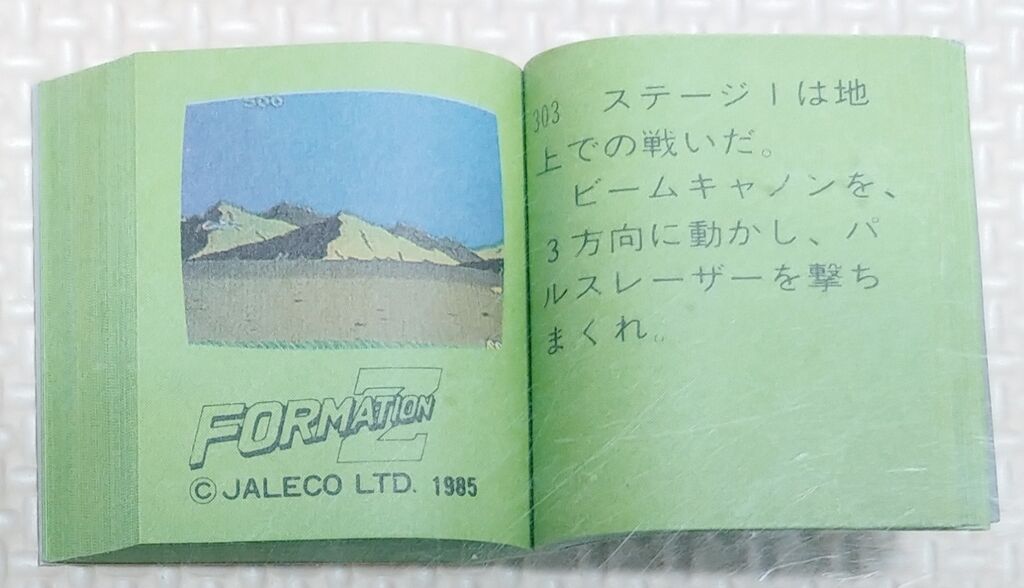 500
FORMATION Z
© JALECO LTD. 1985
303 ステージ1は地
上での戦いだ。
ビームキャノンを、
3方向に動かし、パ
ルスレーザーを撃ち
まくれ。